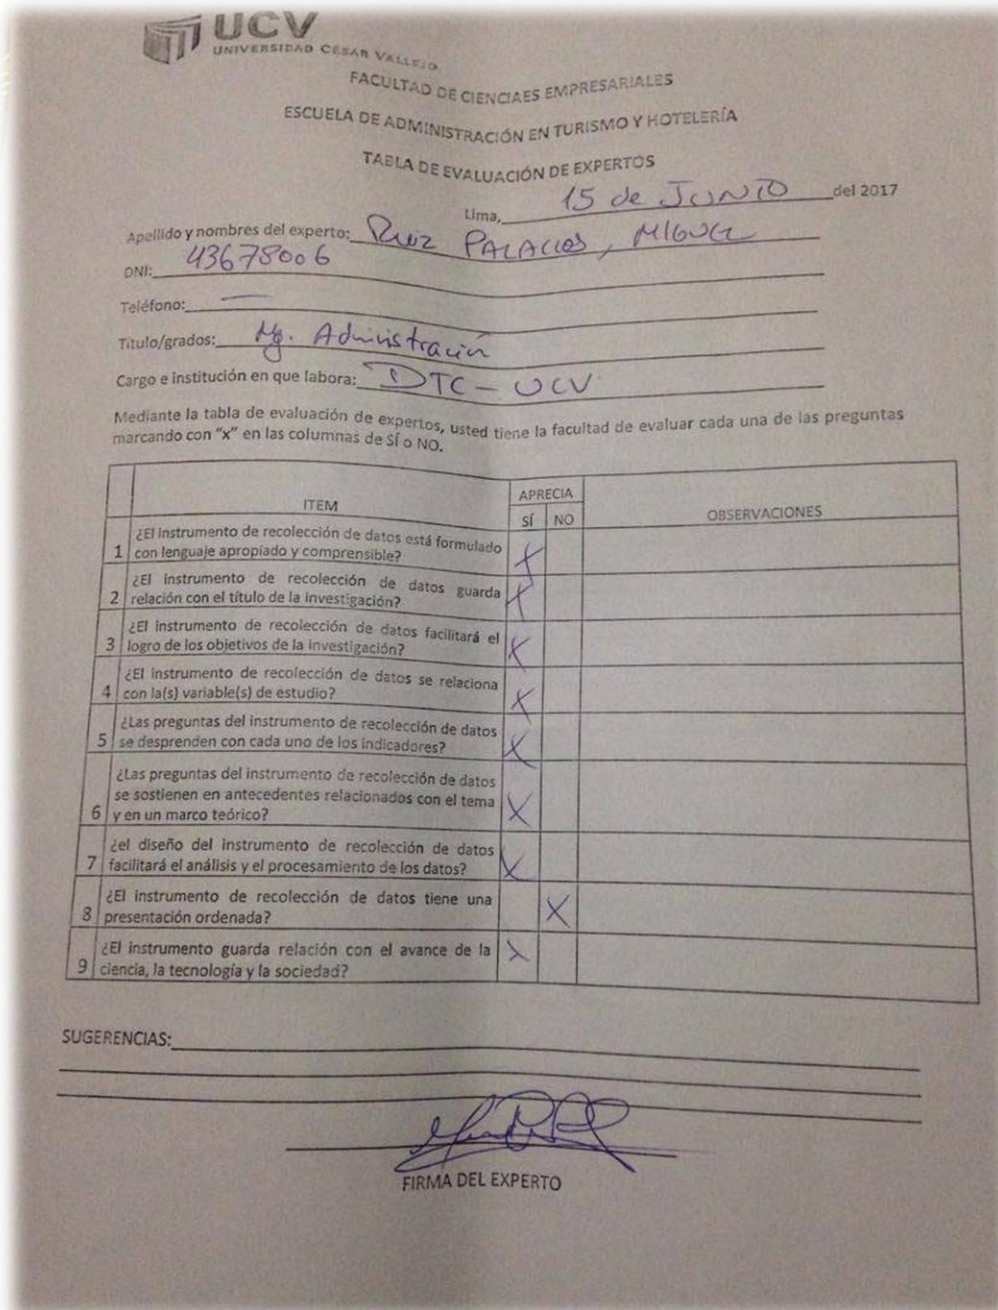 UCV
UNIVERSIDAD CÉSAR VALLEJO
FACULTAD DE CIENCIAES EMPRESARIALES
ESCUELA DE ADMINISTRACIÓN EN TURISMO Y HOTELERÍA
TABLA DE EVALUACIÓN DE EXPERTOS
Lima, 15 de JUNIO del 2017
Apellido y nombres del experto: Ruiz PALACIOS, MIGUEL
DNI: 43678006
Teléfono: —
Título/grados: Mg. Administración
Cargo e institución en que labora: DTC - UCV
Mediante la tabla de evaluación de expertos, usted tiene la facultad de evaluar cada una de las preguntas
marcando con “x” en las columnas de SÍ o NO.
ITEM APRECIA OBSERVACIONES
SÍ NO
1 ¿El instrumento de recolección de datos está formulado
con lenguaje apropiado y comprensible? X
2 ¿El instrumento de recolección de datos guarda
relación con el título de la investigación? X
3 ¿El instrumento de recolección de datos facilitará el
logro de los objetivos de la investigación? X
4 ¿El instrumento de recolección de datos se relaciona
con la(s) variable(s) de estudio? X
5 ¿Las preguntas del instrumento de recolección de datos
se desprenden con cada uno de los indicadores? X
6 ¿Las preguntas del instrumento de recolección de datos
se sostienen en antecedentes relacionados con el tema
y en un marco teórico? X
7 ¿el diseño del instrumento de recolección de datos
facilitará el análisis y el procesamiento de los datos? X
8 ¿El instrumento de recolección de datos tiene una
presentación ordenada? X
9 ¿El instrumento guarda relación con el avance de la
ciencia, la tecnología y la sociedad? X
SUGERENCIAS:
FIRMA DEL EXPERTO